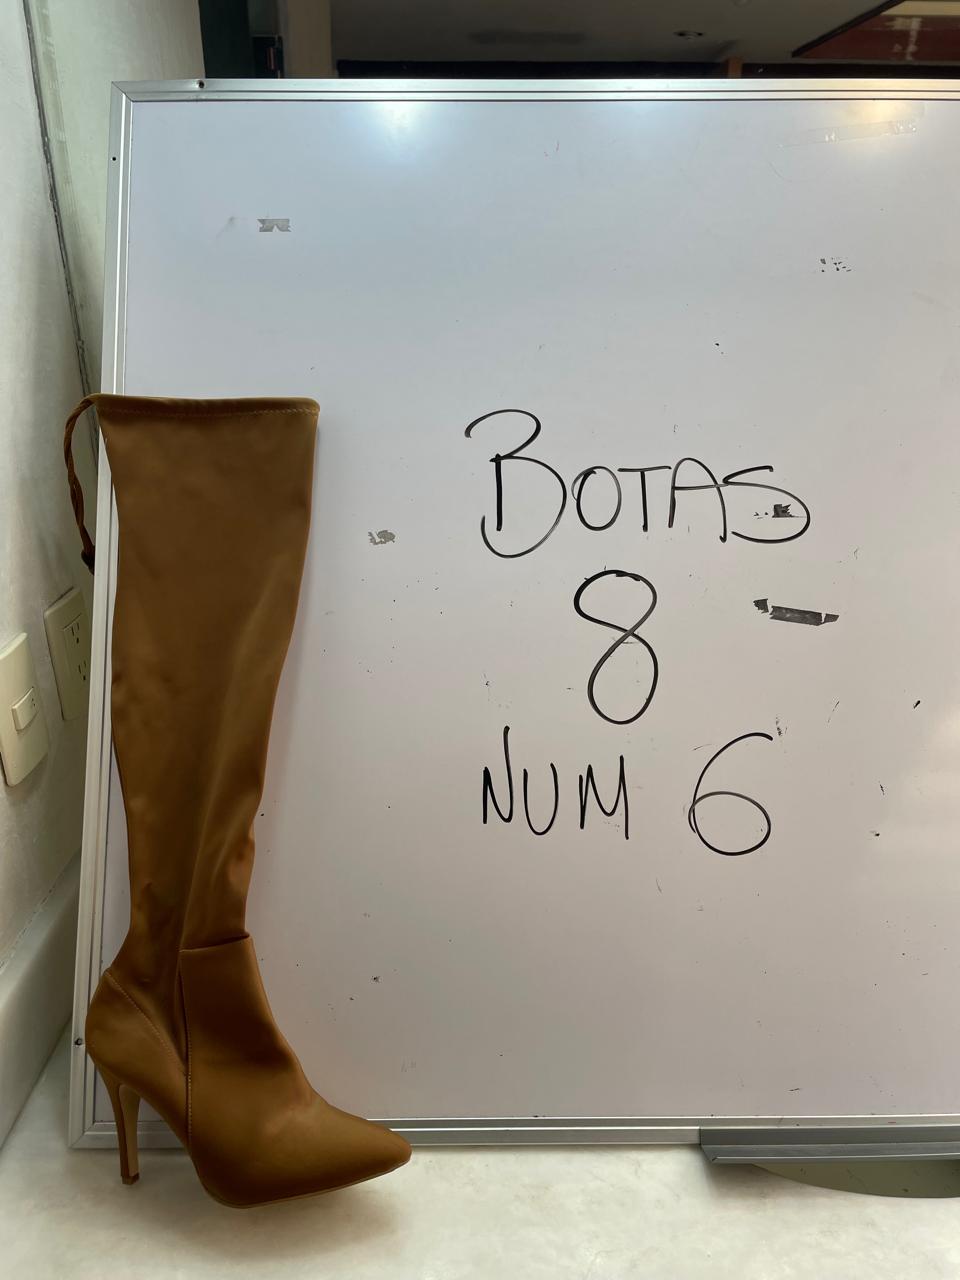 BOTAS
8
NUM 6